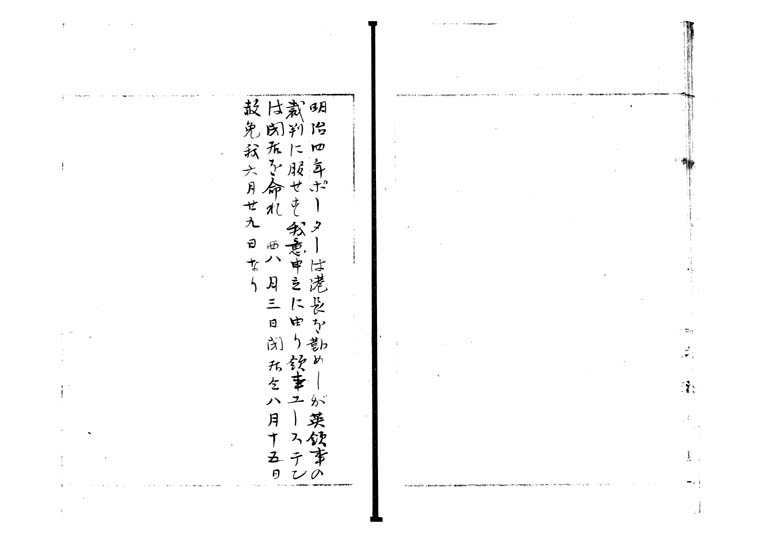 明治四年ポーターは港長を勤めしが英領事の
裁判に服せず我意申立に由り領事ユーステン
は閉居を命れ 西八月三日閉居仝八月十五日
赦免我六月廿九日なり